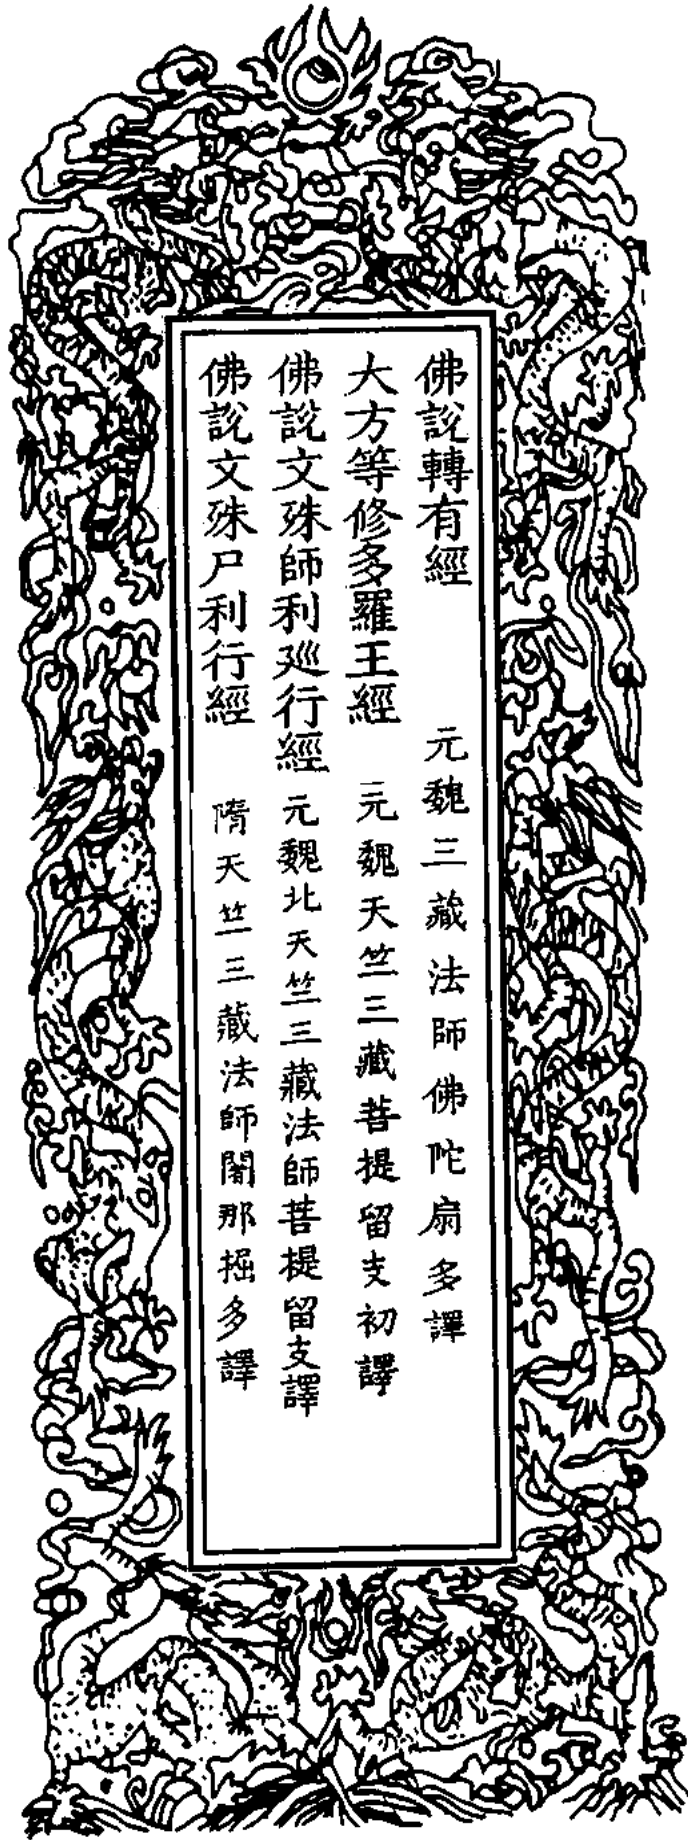 佛說轉有經　元魏三藏法師佛陀扇多譯
大方等修多羅王經　元魏天竺三藏菩提留支初譯
佛說文殊師利廵行經　元魏北天竺三藏法師菩提留支譯
佛說文殊尸利行經　隋天竺三藏法師闍那掘多譯